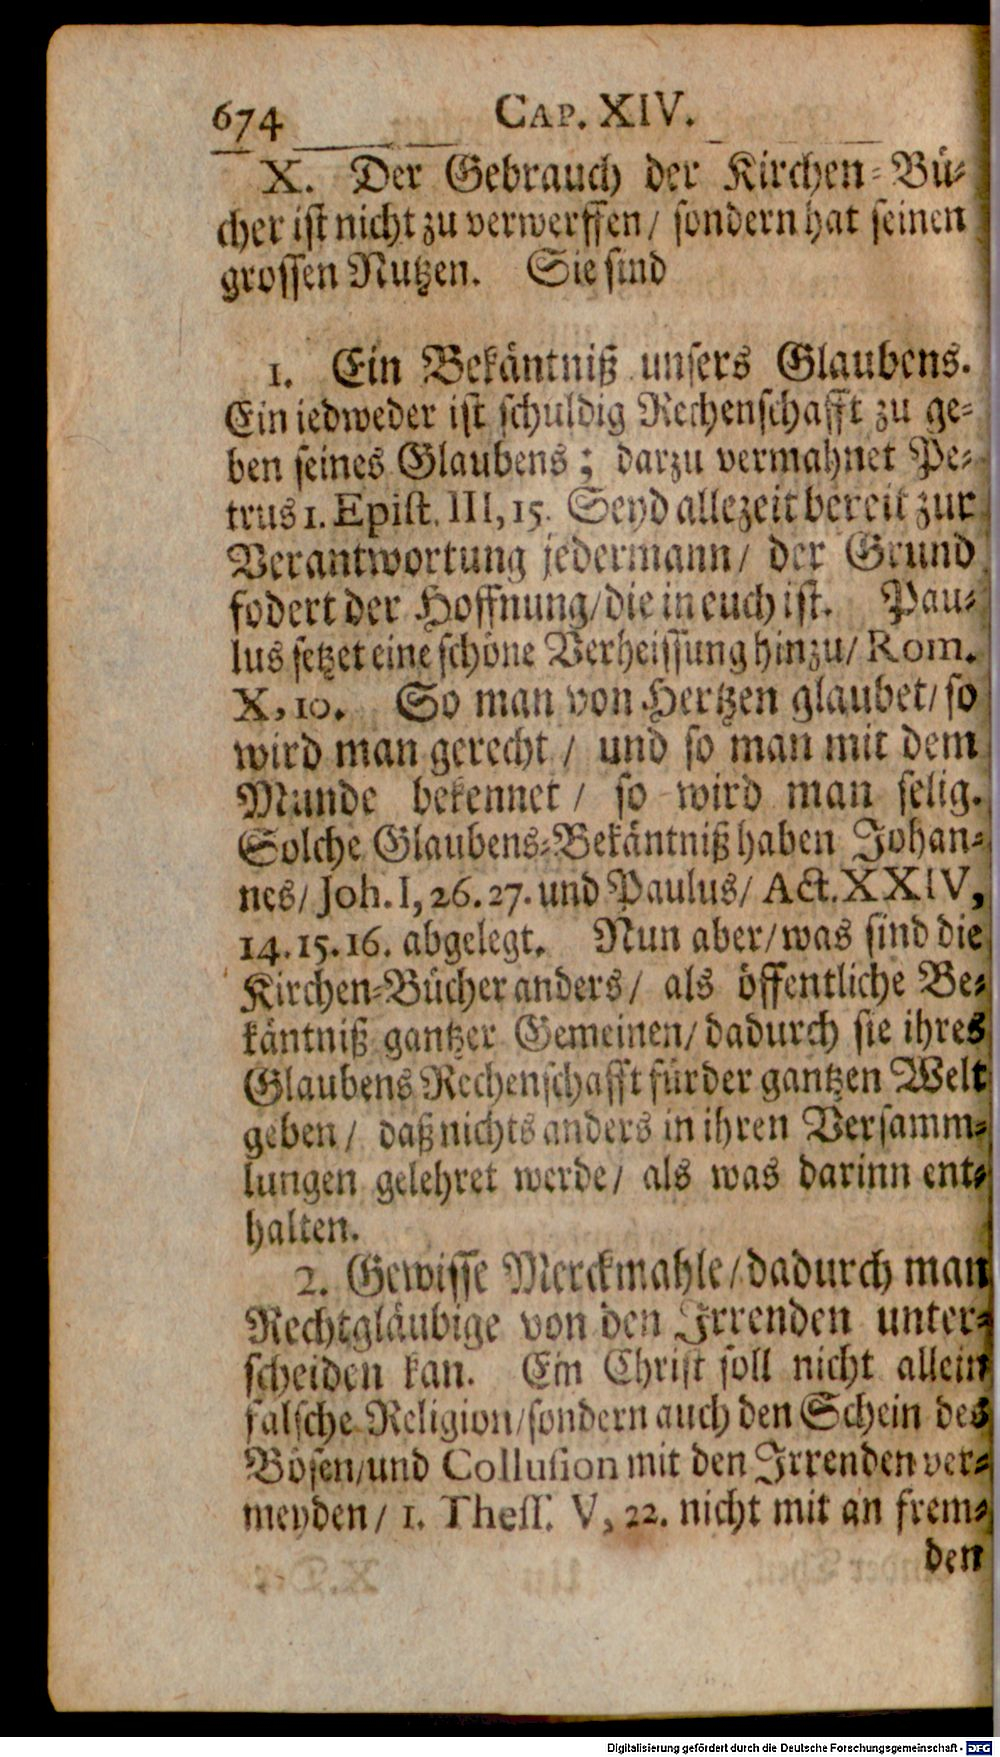 674
CAP. XIV.
X. Der Gebrauch der Kirchen-Bü-
cher ist nicht zu verwerffen / sondern hat seinen
grossen Nutzen. Sie sind
1. Ein Bekäntniß unsers Glaubens.
Ein iedweder ist schuldig Rechenschafft zu ge-
ben seines Glaubens ; darzu vermahnet Pe-
trus 1. Epist. III, 15. Seyd allezeit bereit zur
Verantwortung jedermann / der Grund
fodert der Hoffnung / die in euch ist. Pau-
lus setzet eine schöne Verheissung hinzu / Rom.
X, 10. So man von Hertzen glaubet / so
wird man gerecht / und so man mit dem
Munde bekennet / so wird man selig.
Solche Glaubens-Bekäntniß haben Johan-
nes / Joh. I, 26. 27. und Paulus / Act. XXIV,
14. 15. 16. abgelegt. Nun aber / was sind die
Kirchen-Bücher anders / als öffentliche Be-
käntniß gantzer Gemeinen / dadurch sie ihres
Glaubens Rechenschafft für der gantzen Welt
geben / daß nichts anders in ihren Versamm-
lungen gelehret werde / als was darinn ent-
halten.
2. Gewisse Merckmahle / dadurch man
Rechtgläubige von den Irrenden unter-
scheiden kan. Ein Christ soll nicht allein
falsche Religion / sondern auch den Schein des
Bösen / und Collusion mit den Irrenden ver-
meyden / 1. Thess. V, 22. nicht mit an frem-
den
Digitalisierung gefördert durch die Deutsche Forschungsgemeinschaft - DFG